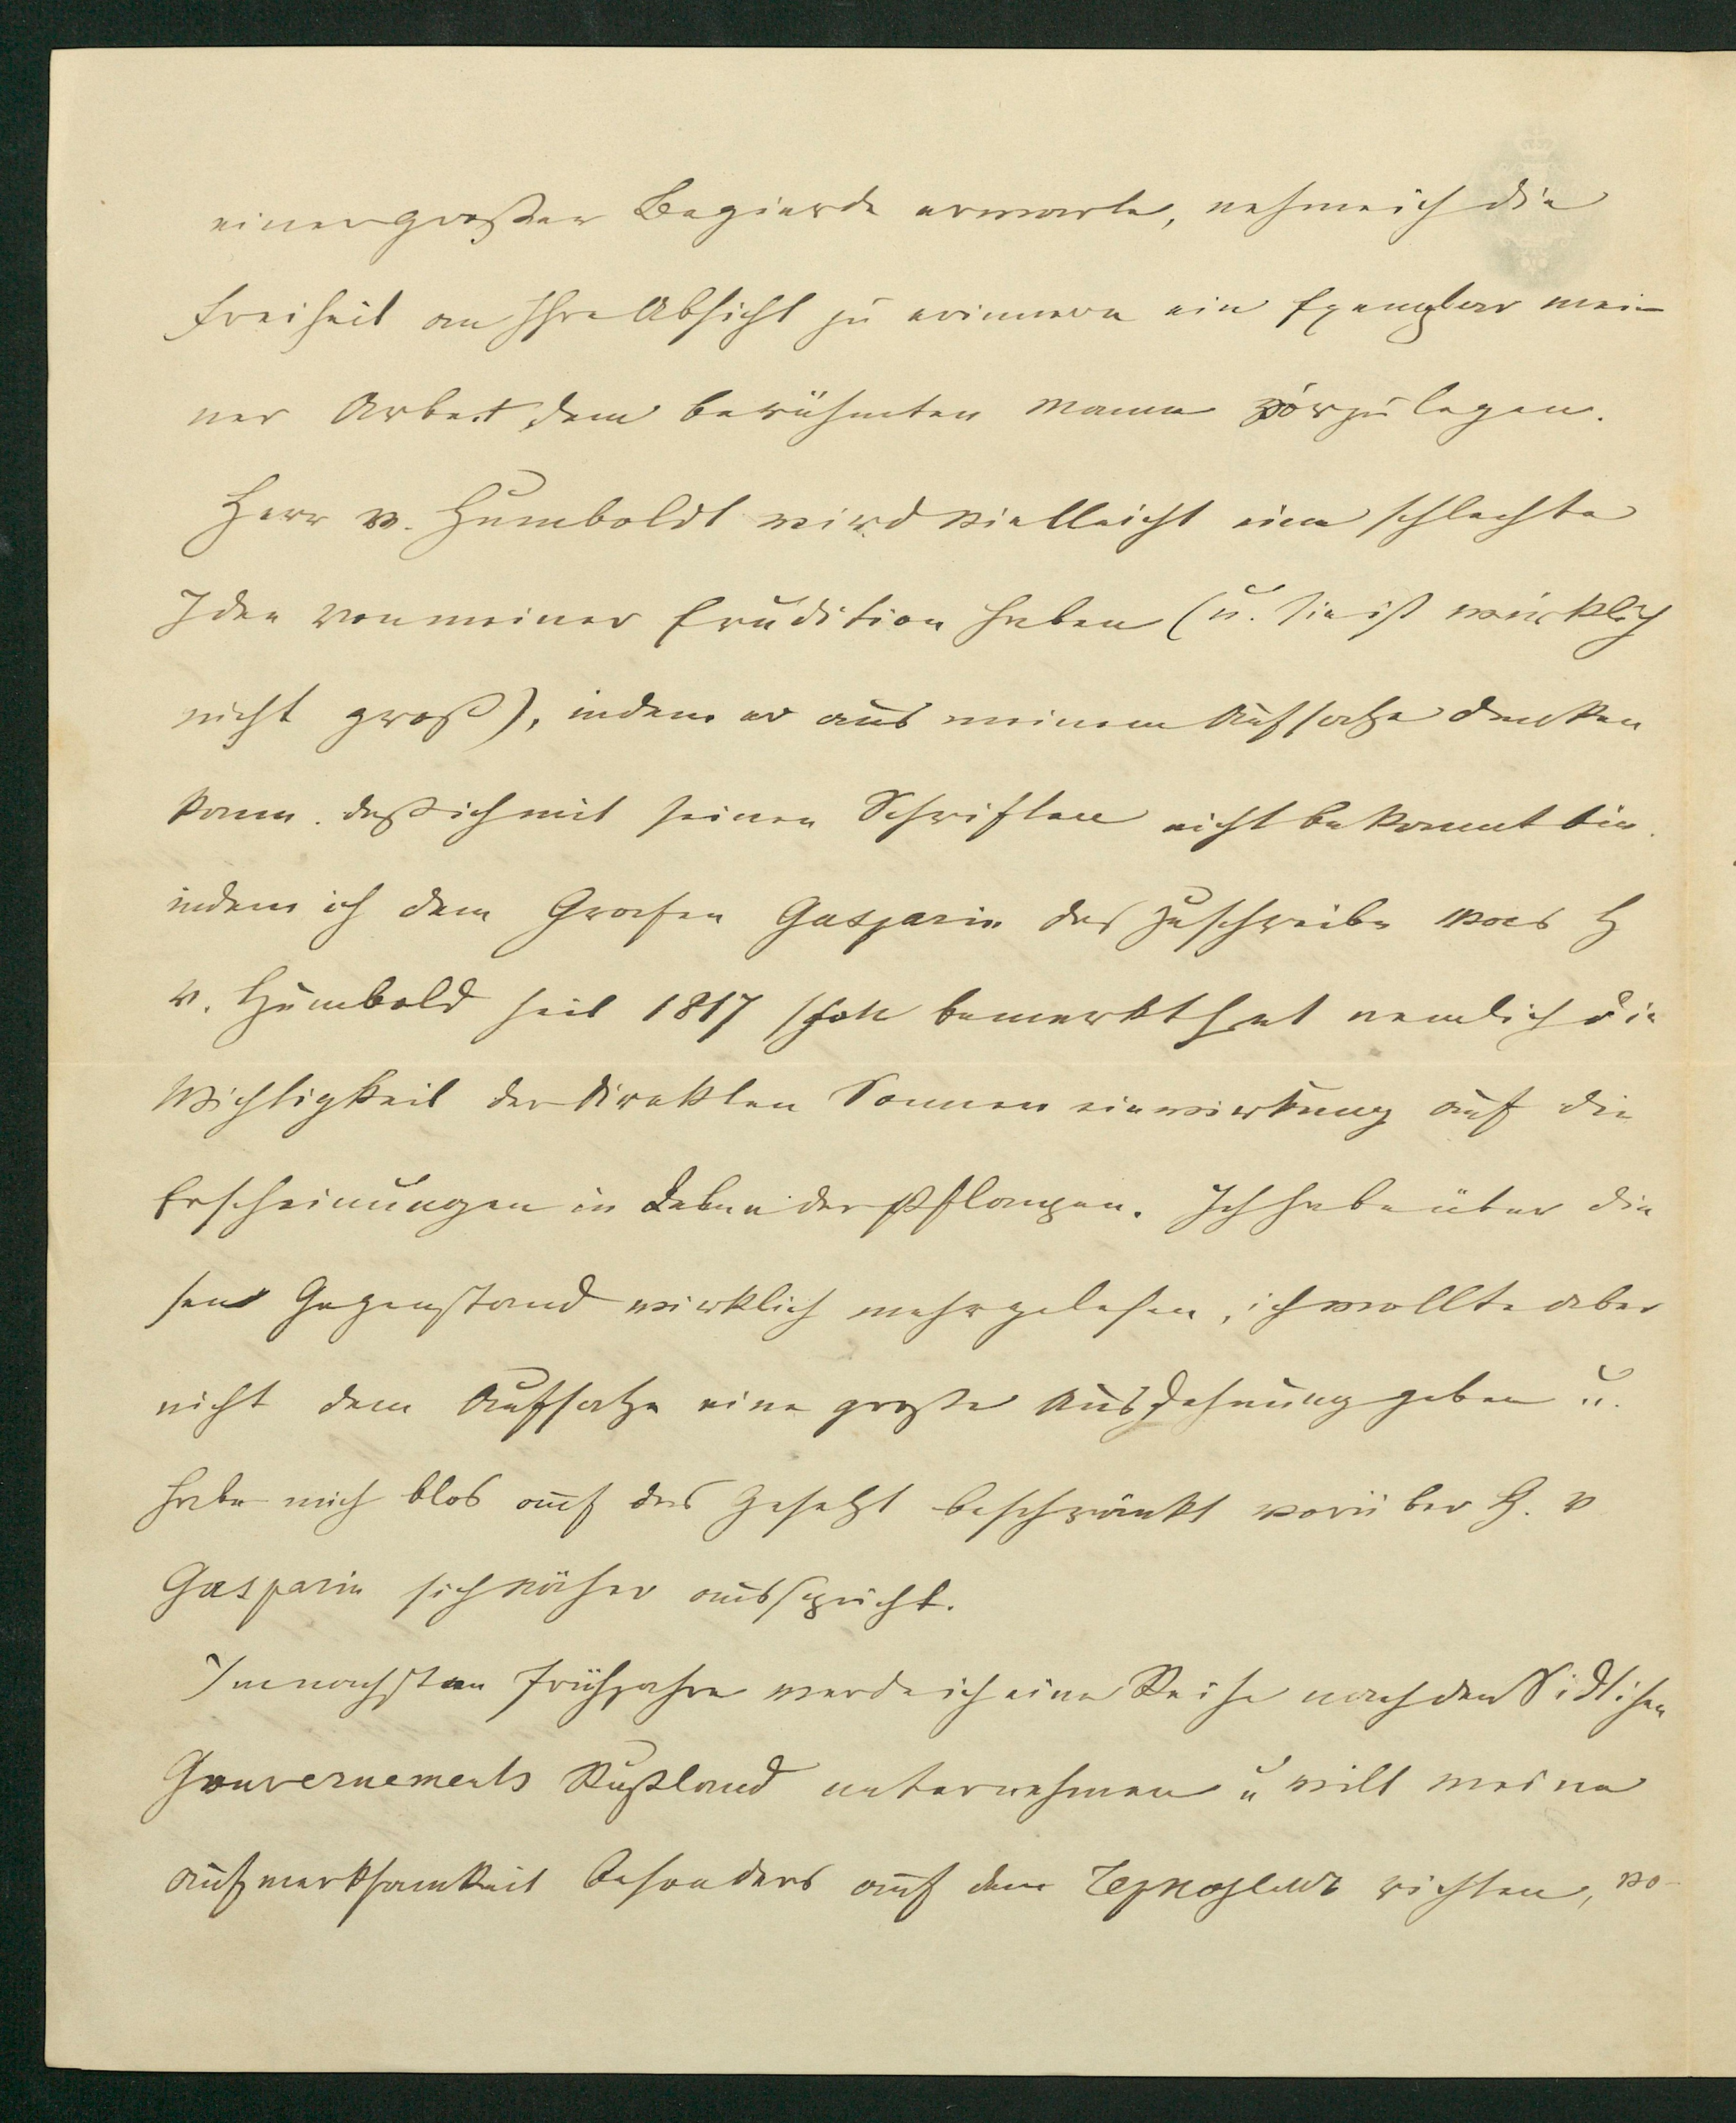 einer großer Begierde erwarte, nehme ich die
Freiheit an Ihre Absicht zu erinnern ein Exemplar mei-
ner Arbeit dem berühmten Manne vorzulegen.
Herr v. Humboldt wird vielleicht eine schlechte
Idee von meiner Erudition haben (u. sie ist wirklich
nicht groß), indem er aus meinem Aufsatze denken
kann. daß ich mit seinen Schriften nicht bekannt bin.
indem ich dem Grafen Gasparin das zuschreibe was H
v. Humbold seit 1817 schon bemerkt hat nemlich die
Wichtigkeit der direkten Sonnen einwirkung auf die
Erscheinungen in Leben der Pflanzen. Ich habe über die
sen Gegenstand wirklich mehr gelesen, ich wollte aber
nicht dem Aufsatze eine große Ausdehnung geben u.
habe mich blos auf das Gesetzt beschränkt worüber H. v
Gasparin sich näher ausspricht.
Im nachsten Frühjahre werde ich eine Reise nach den Sidlichen
Gouvernements Rußland unternehmen u will meine
Aufmerksamkeit besonders auf dem Черноземъ richten, wo-